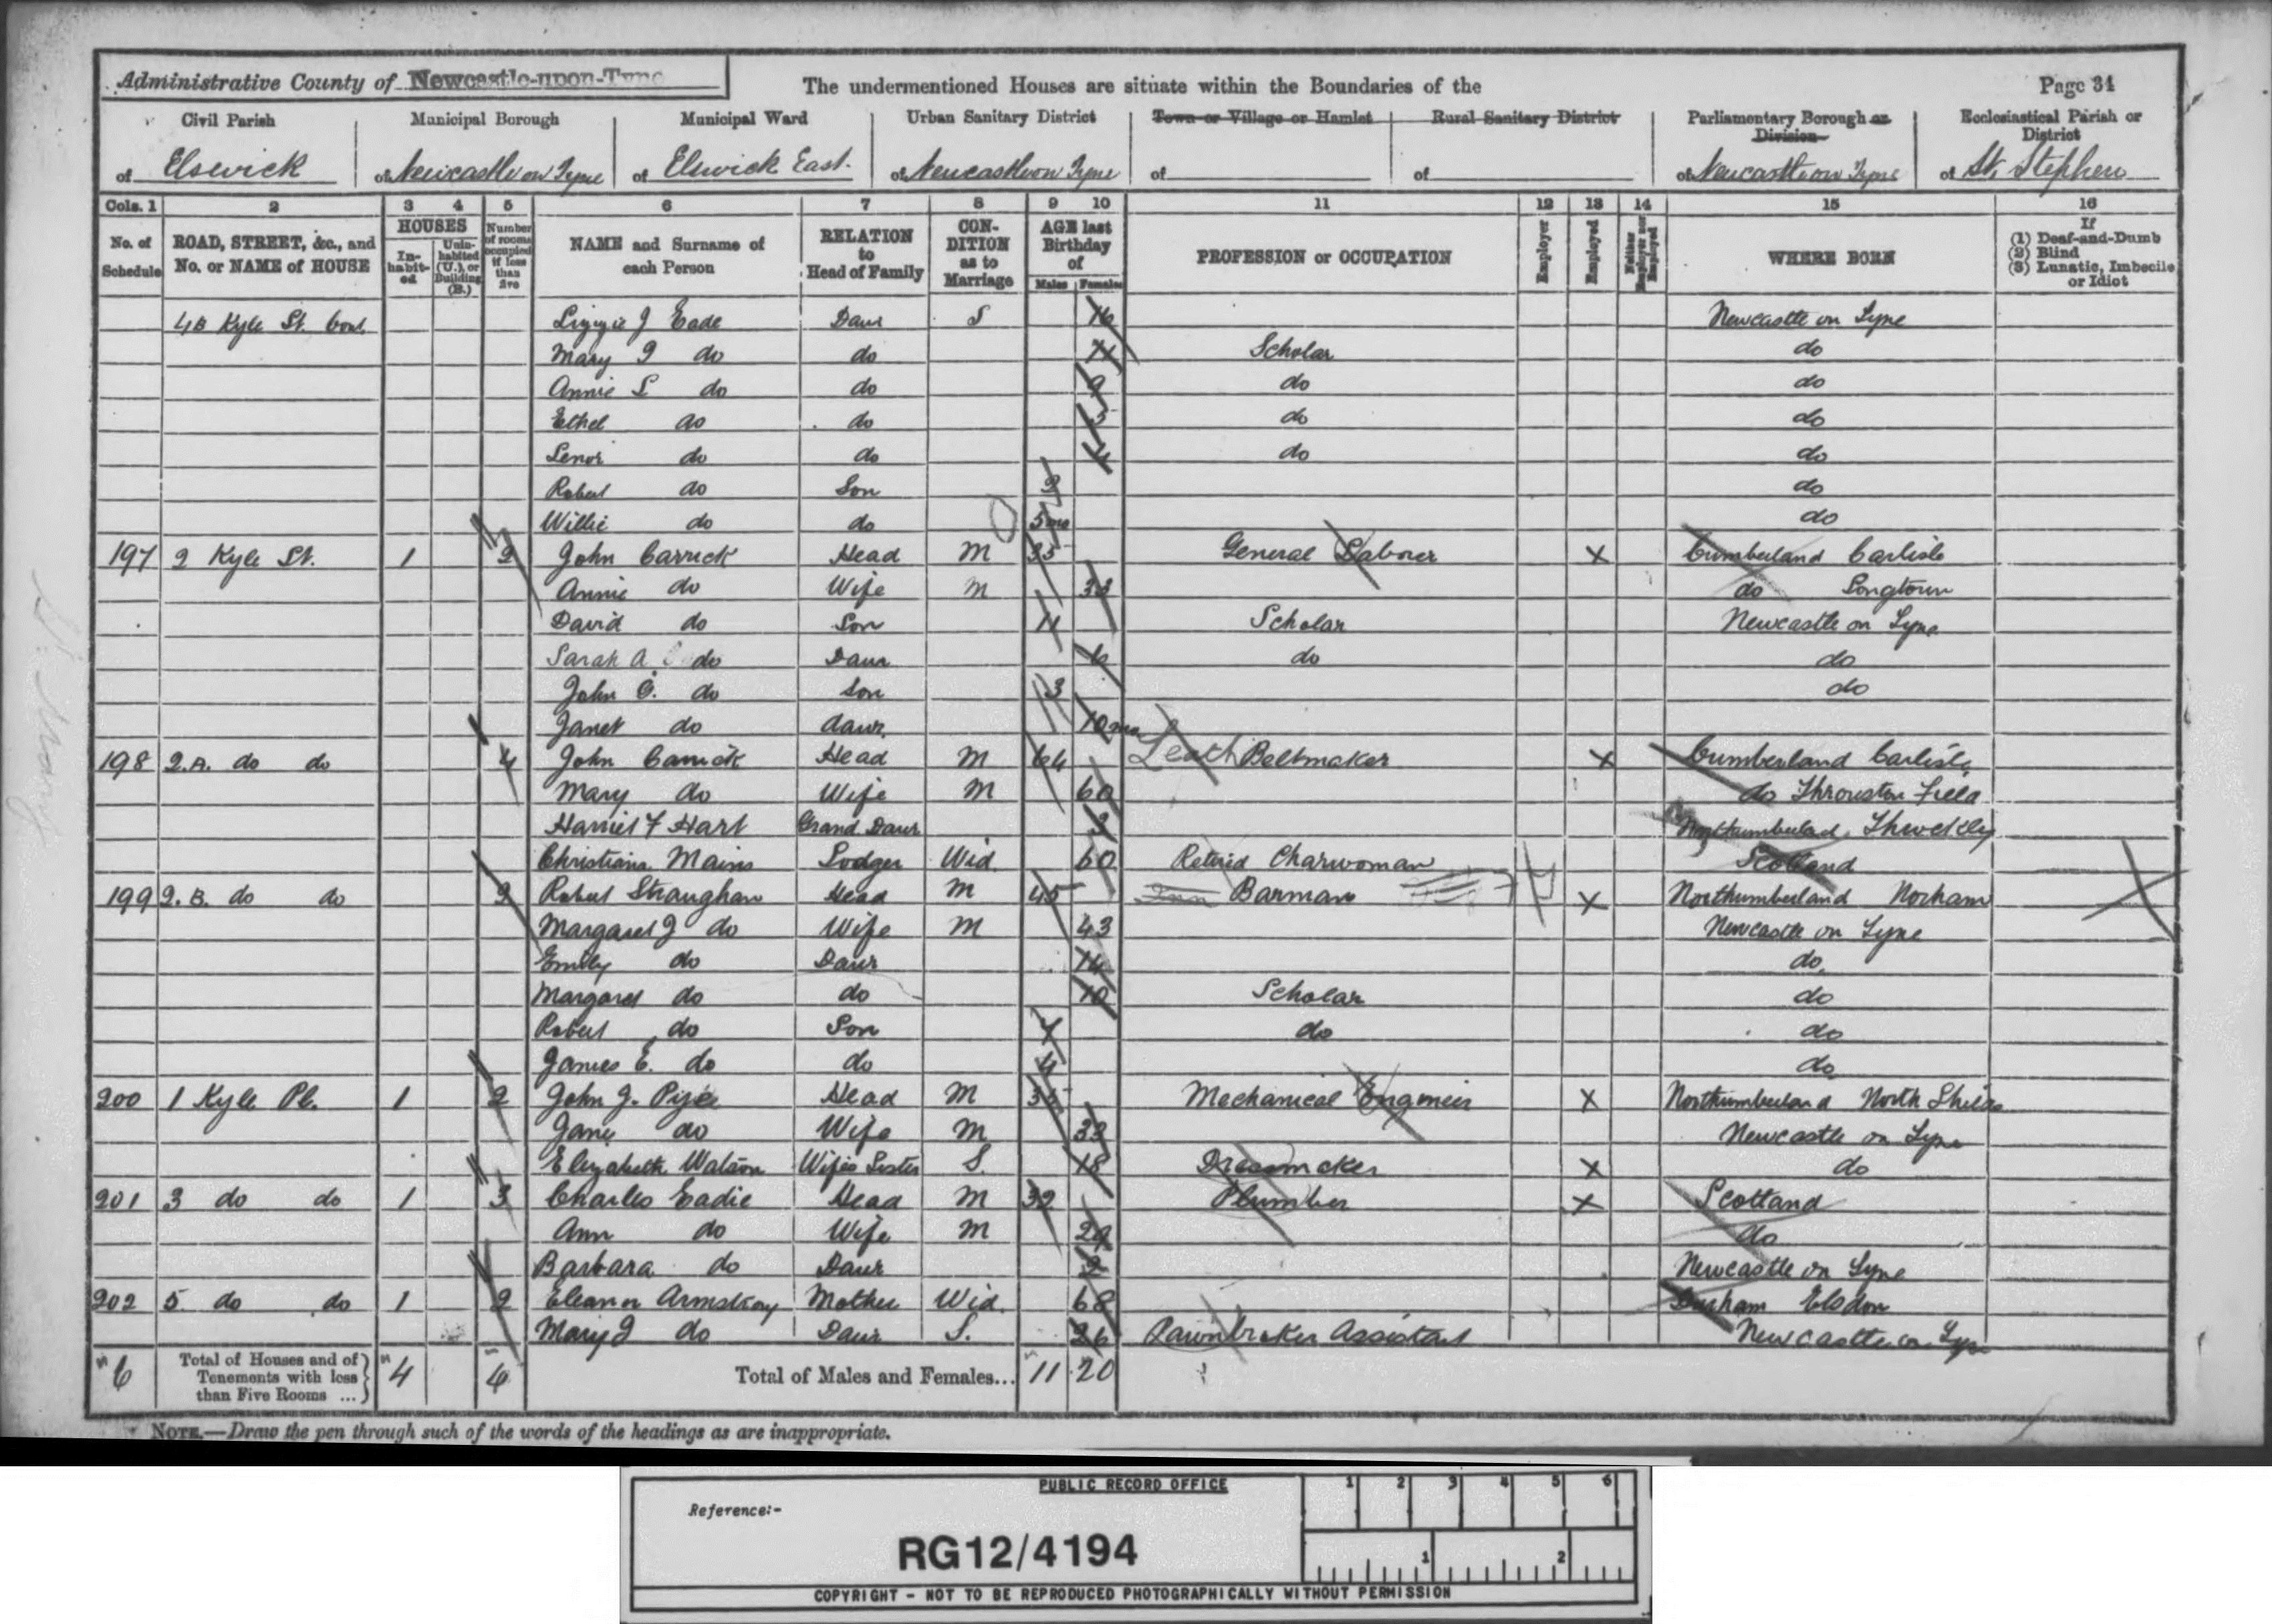 Administrative County of Newcastle-upon-Tyne The undermentioned Houses are situate within the Boundaries of the Page 34
Civil Parish Municipal Borough Municipal Ward Urban Sanitary District Town or Village or Hamlet Rural Sanitary District Parliamentary Borough or Division Ecclesiastical Parish or District
of Elswick of Newcastle on Tyne of Elswick East. of Newcastle on Tyne of of of Newcastle on Tyne of St. Stephen
Cols. 1 2 3 4 5 6 7 8 9 10 11 12 13 14 15 16
No. of Schedule ROAD, STREET, &c., and No. or NAME of HOUSE HOUSES Inhabited Uninhabited (U.), or Building (B.) Number of rooms occupied if less than five NAME and Surname of each Person RELATION to Head of Family CONDITION as to Marriage AGE last Birthday of Males Females PROFESSION or OCCUPATION Employer Employed Neither Employer nor Employed WHERE BORN If (1) Deaf-and-Dumb (2) Blind (3) Lunatic, Imbecile or Idiot
4B Kyle St. Cont. Lizzie J Eade Daur S 16 Newcastle on Tyne
Mary J do do 11 Scholar do
Annie S do do 9 do do
Ethel do do 5 do do
Lenor do do 4 do do
Robert do Son do
Willie do do 5 mo do
197 2 Kyle St. 1 2 John Carrick Head M 35 General Laborer X Cumberland Carlisle
Annie do Wife M 33 do Longtown
David do Son 11 Scholar Newcastle on Tyne
Sarah A. do Daur 6 do do
John G. do Son 3 do
Janet do daur. 10 mo
198 2.A. do do 4 John Carrick Head M 64 Leath Beltmaker X Cumberland Carlisle
Mary do Wife M 60 do Throuston Field
Harriet F Hart Grand Daur 3 Northumberland
Christiana Mains Lodger Wid. 60 Retired Charwoman Scotland
199 2.B. do do 2 Robert Straughan Head M 45 Inn Barman X Northumberland Norham
Margaret J do Wife M 43 Newcastle on Tyne
Emily do Daur 14 do
Margaret do do 10 Scholar do
Robert do Son 7 do do
James E. do do 4 do
200 1 Kyle Pl. 1 2 John J. Head M 35 Mechanical Engineer X Northumberland North Shields
Jane do Wife M 33 Newcastle on Tyne
Elizabeth Watson Wifes Sister S. 18 Dressmaker X do
201 3 do do 1 3 Charles Eadie Head M 32 Plumber X Scotland
Ann do Wife M 29 do
Barbara do Daur 2 Newcastle on Tyne
202 5 do do 1 2 Eleanor Armstrong Mother Wid. 68 Durham Elsdon
Mary J do Daur S. 26 Pawnbroker Assistant Newcastle on Tyne
6 Total of Houses and of Tenements with less than Five Rooms ... 4 6 Total of Males and Females... 11 20
NOTE.—Draw the pen through such of the words of the headings as are inappropriate.
PUBLIC RECORD OFFICE
1 2 3 4 5 6
Reference:-
RG12/4194
1 2
COPYRIGHT - NOT TO BE REPRODUCED PHOTOGRAPHICALLY WITHOUT PERMISSION